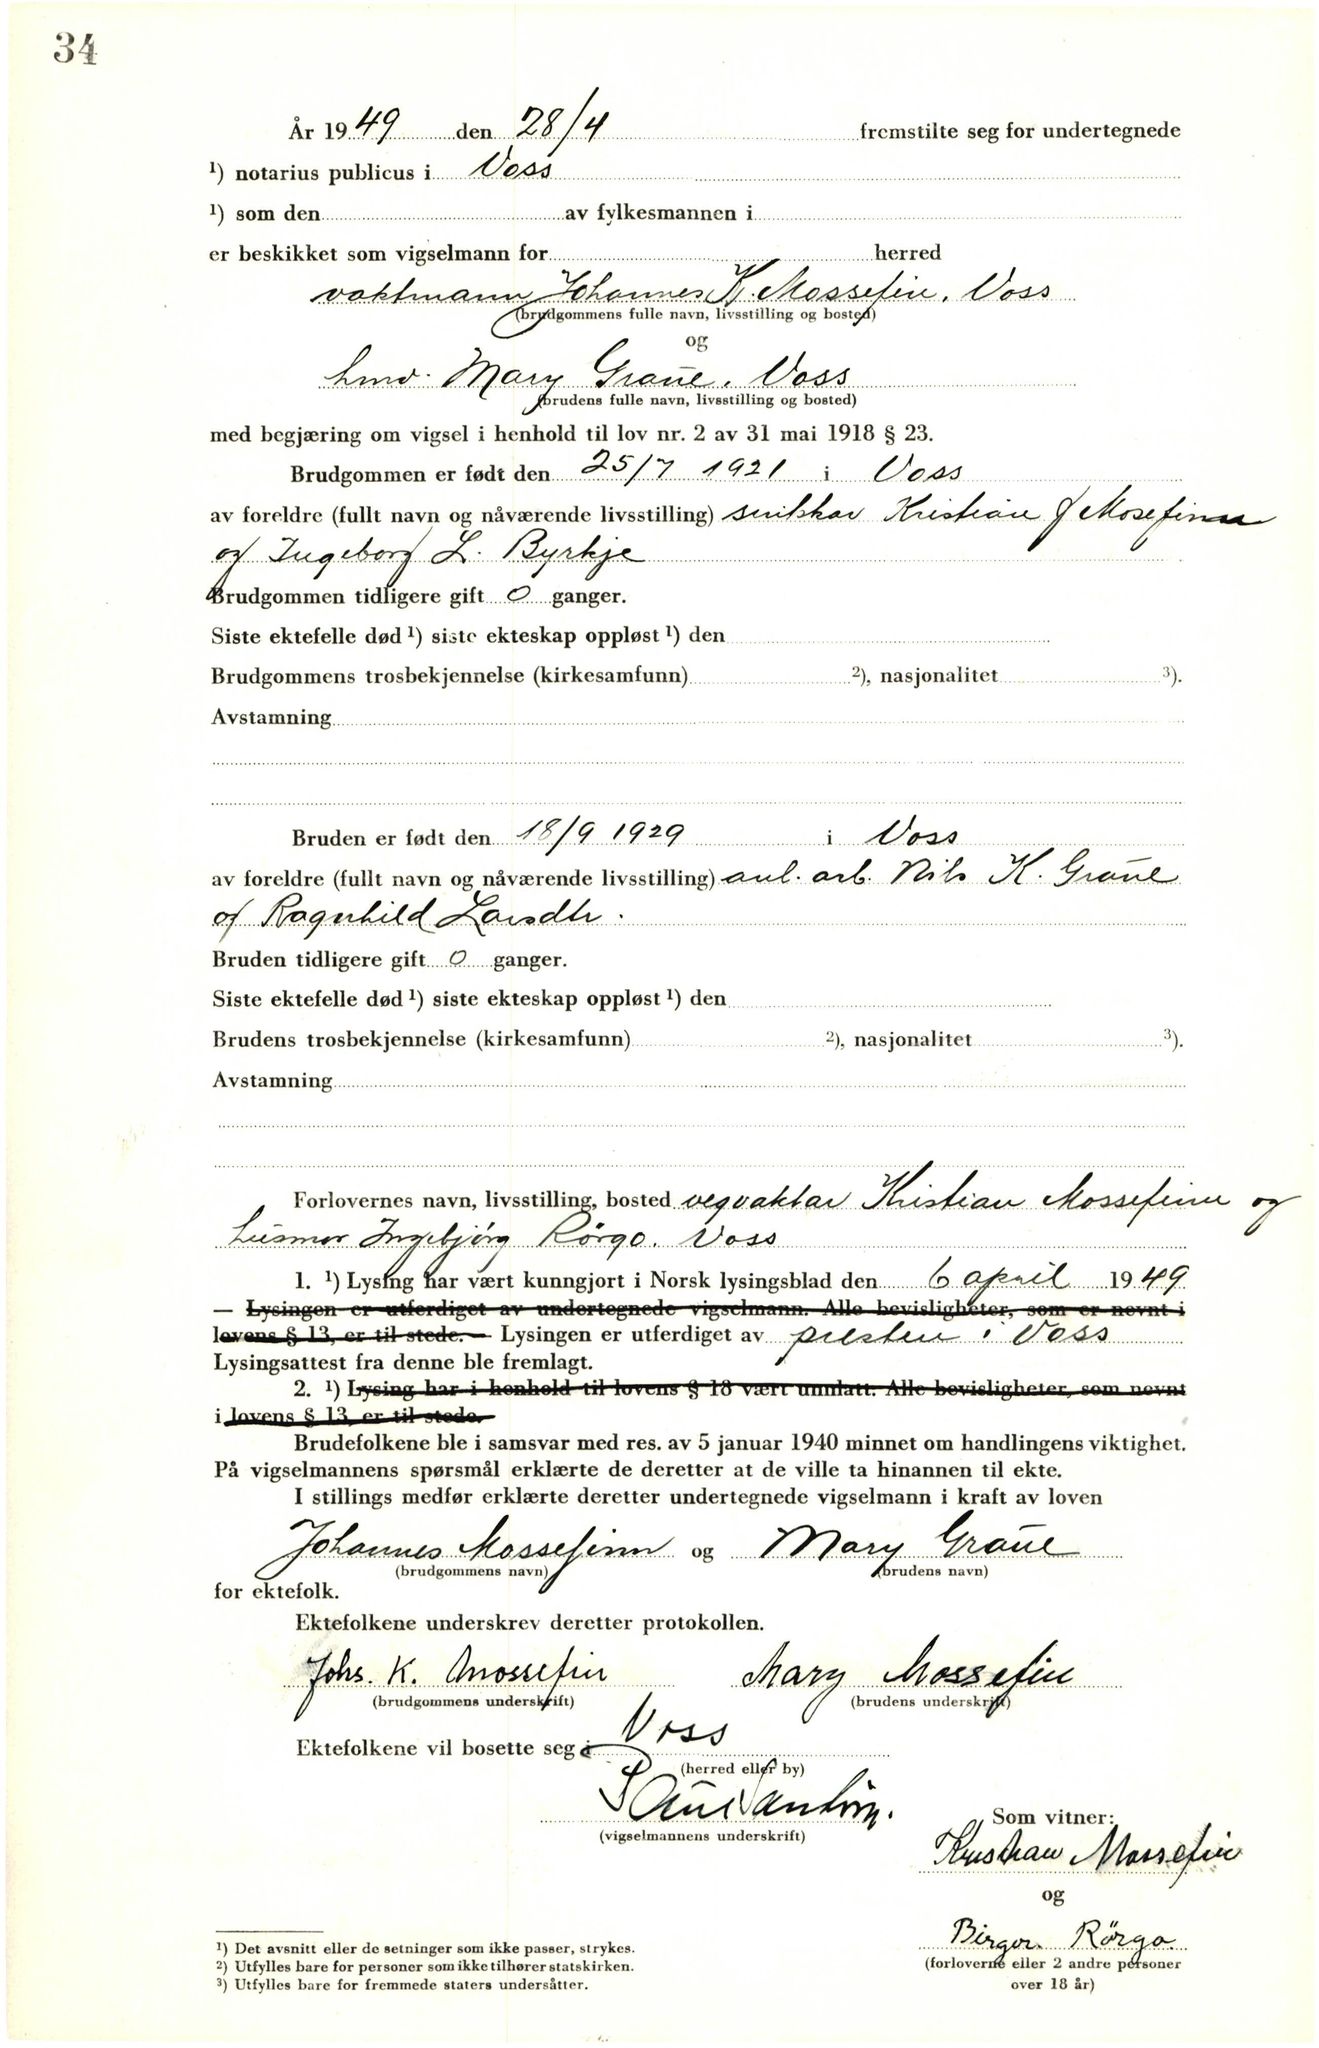 34
År 1949 den 28/4 fremstilte seg for undertegnede
¹) notarius publicus i Voss
¹) som den av fylkesmannen i
er beskikket som vigselmann for herred
vaktmann Johannes K. Mossefin, Voss
(brudgommens fulle navn, livsstilling og bosted)
og
hmv. Mary Graue, Voss
(brudens fulle navn, livsstilling og bosted)
med begjæring om vigsel i henhold til lov nr. 2 av 31 mai 1918 § 23.
Brudgommen er født den 25/7 1921 i Voss
av foreldre (fullt navn og nåværende livsstilling) snikkar Kristian J Mosefinn
og Ingeborg L. Byrkje
Brudgommen tidligere gift 0 ganger.
Siste ektefelle død ¹) siste ekteskap oppløst ¹) den
Brudgommens trosbekjennelse (kirkesamfunn) ²), nasjonalitet ³).
Avstamning
Bruden er født den 18/9 1929 i Voss
av foreldre (fullt navn og nåværende livsstilling) anl. arb. Nils K. Graue
og Ragnhild Larsdtr.
Bruden tidligere gift 0 ganger.
Siste ektefelle død ¹) siste ekteskap oppløst ¹) den
Brudens trosbekjennelse (kirkesamfunn) ²), nasjonalitet ³).
Avstamning
Forlovernes navn, livsstilling, bosted vegvaktar Kristian Mossefinn og
husmor Ingebjørg Rörgo. Voss
1. ¹) Lysing har vært kunngjort i Norsk lysingsblad den 6 april 1949
— Lysingen er utferdiget av undertegnede vigselmann. Alle bevisligheter, som er nevnt i
lovens § 13, er til stede. — Lysingen er utferdiget av presten i Voss
Lysingsattest fra denne ble fremlagt.
2. ¹) Lysing har i henhold til lovens § 18 vært unnlatt. Alle bevisligheter, som nevnt
i lovens § 13, er til stede.
Brudefolkene ble i samsvar med res. av 5 januar 1940 minnet om handlingens viktighet.
På vigselmannens spørsmål erklærte de deretter at de ville ta hinannen til ekte.
I stillings medfør erklærte deretter undertegnede vigselmann i kraft av loven
Johannes Mossefinn og Mary Graue
(brudgommens navn) (brudens navn)
for ektefolk.
Ektefolkene underskrev deretter protokollen.
Johs. K. Mossefin Mary Mossefin
(brudgommens underskrift) (brudens underskrift)
Ektefolkene vil bosette seg i Voss
(herred eller by)
(vigselmannens underskrift)
Som vitner:
Kristian Mossefin
og
Birger Rörgo.
(forloverne eller 2 andre personer
over 18 år)
¹) Det avsnitt eller de setninger som ikke passer, strykes.
²) Utfylles bare for personer som ikke tilhører statskirken.
³) Utfylles bare for fremmede staters undersåtter.